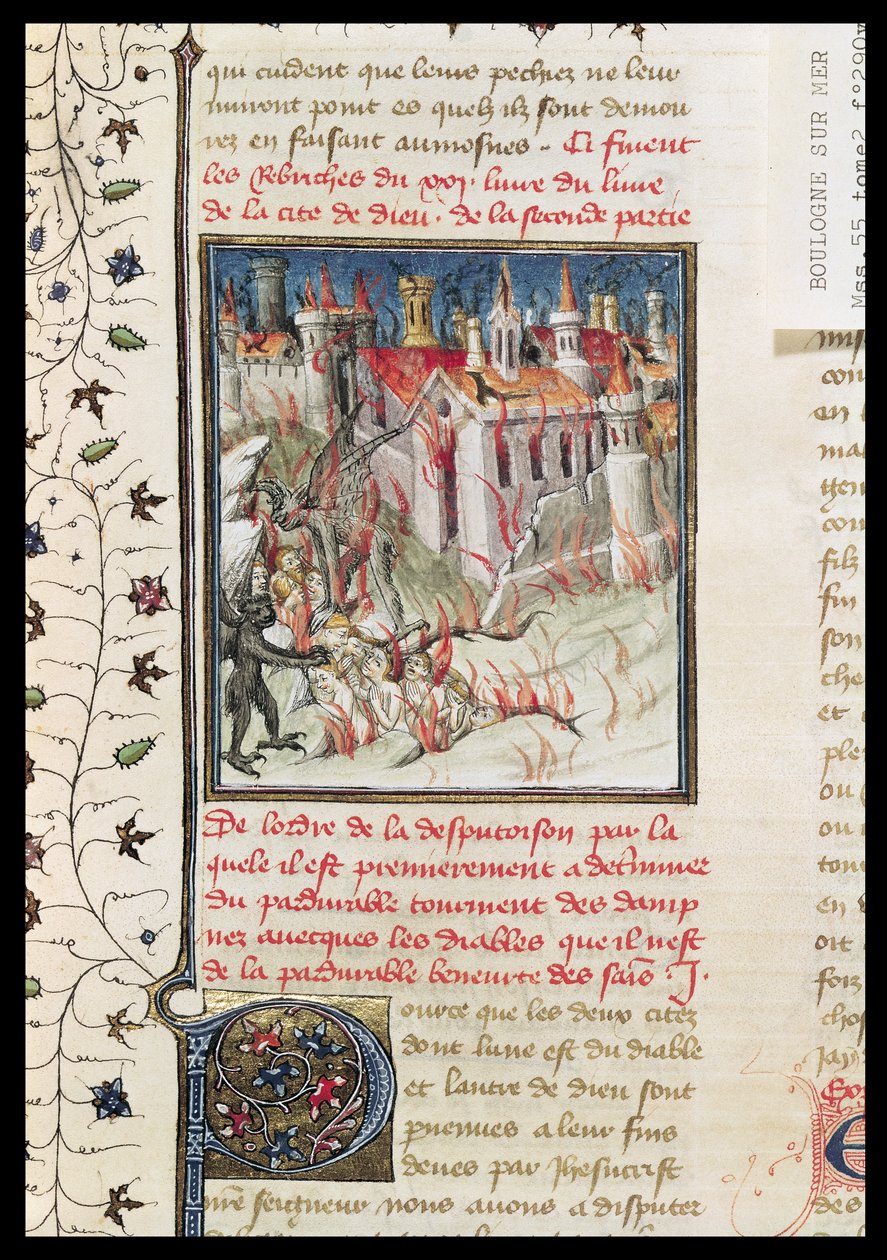 qui cuident que leurs pechiez ne leur
nuiront point es quelz ilz sont demou
rez en faisant aumosnes. Ci finent
les Rebriches du xxj. liure du liure
de la cite de dieu. de la seconde partie
De lordre de la desputoison par la
quele il est premierement a determiner
du pardurable tourment des damp
nez auecques les diables que il nest
de la pardurable beneurte des sains. J.
Pource que les deux citez
dont lune est du diable
et lautre de dieu sont
peruenues a leur fins
deues par Jhesucrist
nostre seigneur nous auons a disputer
BOULOGNE SUR MER
Mss.55 tome2 f°290v
cou
en
ma
con
filz
fin
son
che
et
ple
ou
ou
tour
en
oit
foiz
chos
des